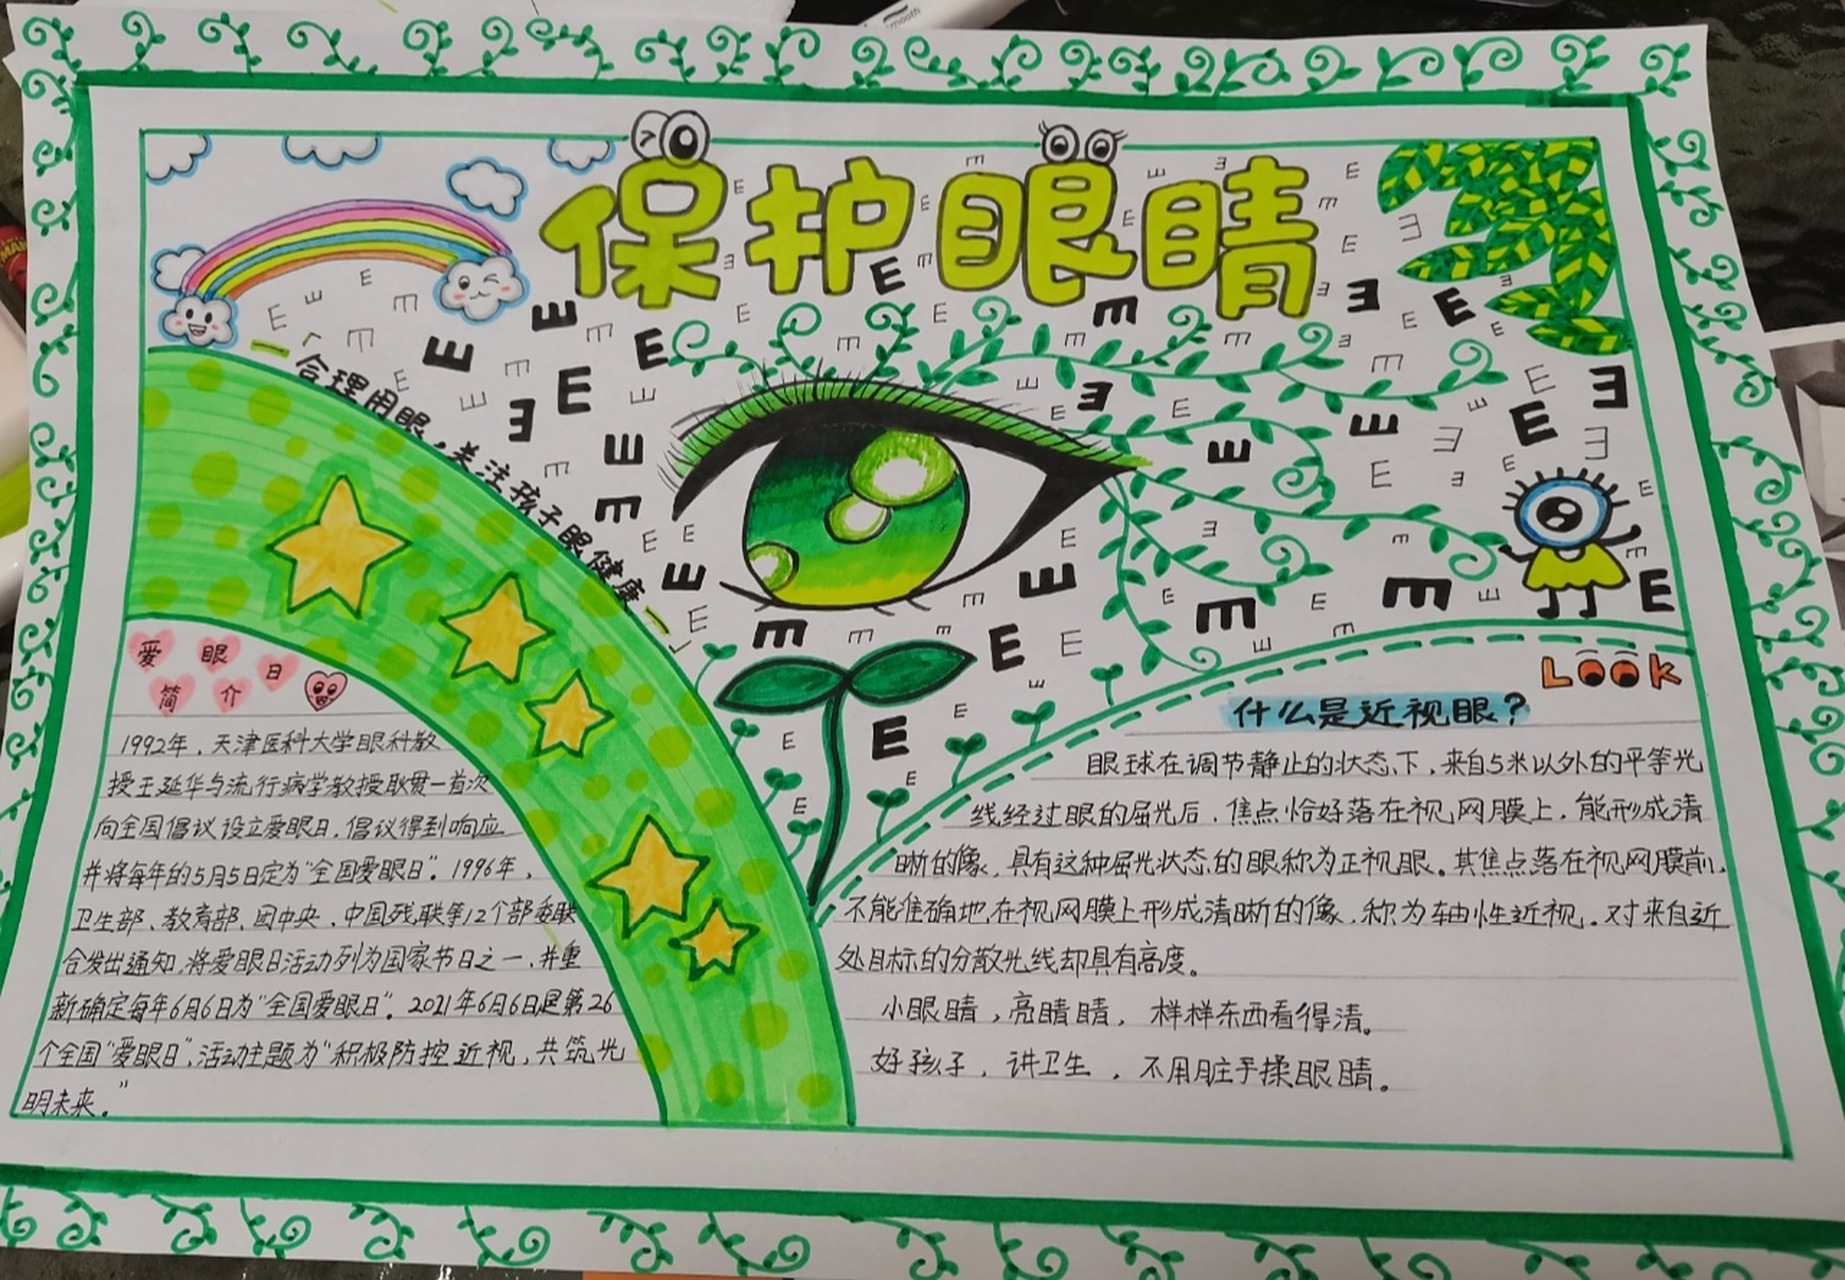 保护眼睛
“合理用眼，关注孩子眼健康”
爱眼日
简介
1992年，天津医科大学眼科教
授王延华与流行病学教授耿贯一首次
向全国倡议设立爱眼日，倡议得到响应
并将每年的5月5日定为“全国爱眼日”。1996年，
卫生部、教育部、团中央、中国残联等12个部委联
合发出通知，将爱眼日活动列为国家节日之一，并重
新确定每年6月6日为“全国爱眼日”。2021年6月6日是第26
个全国“爱眼日”，活动主题为“积极防控近视，共筑光
明未来。”
LOOK
什么是近视眼？
眼球在调节静止的状态下，来自5米以外的平等光
线经过眼的屈光后，焦点恰好落在视网膜上，能形成清
晰的像，具有这种屈光状态的眼称为正视眼。其焦点落在视网膜前，
不能准确地在视网膜上形成清晰的像，称为轴性近视。对来自近
处目标的分散光线却具有高度。
小眼睛，亮睛睛，样样东西看得清。
好孩子，讲卫生，不用脏手揉眼睛。